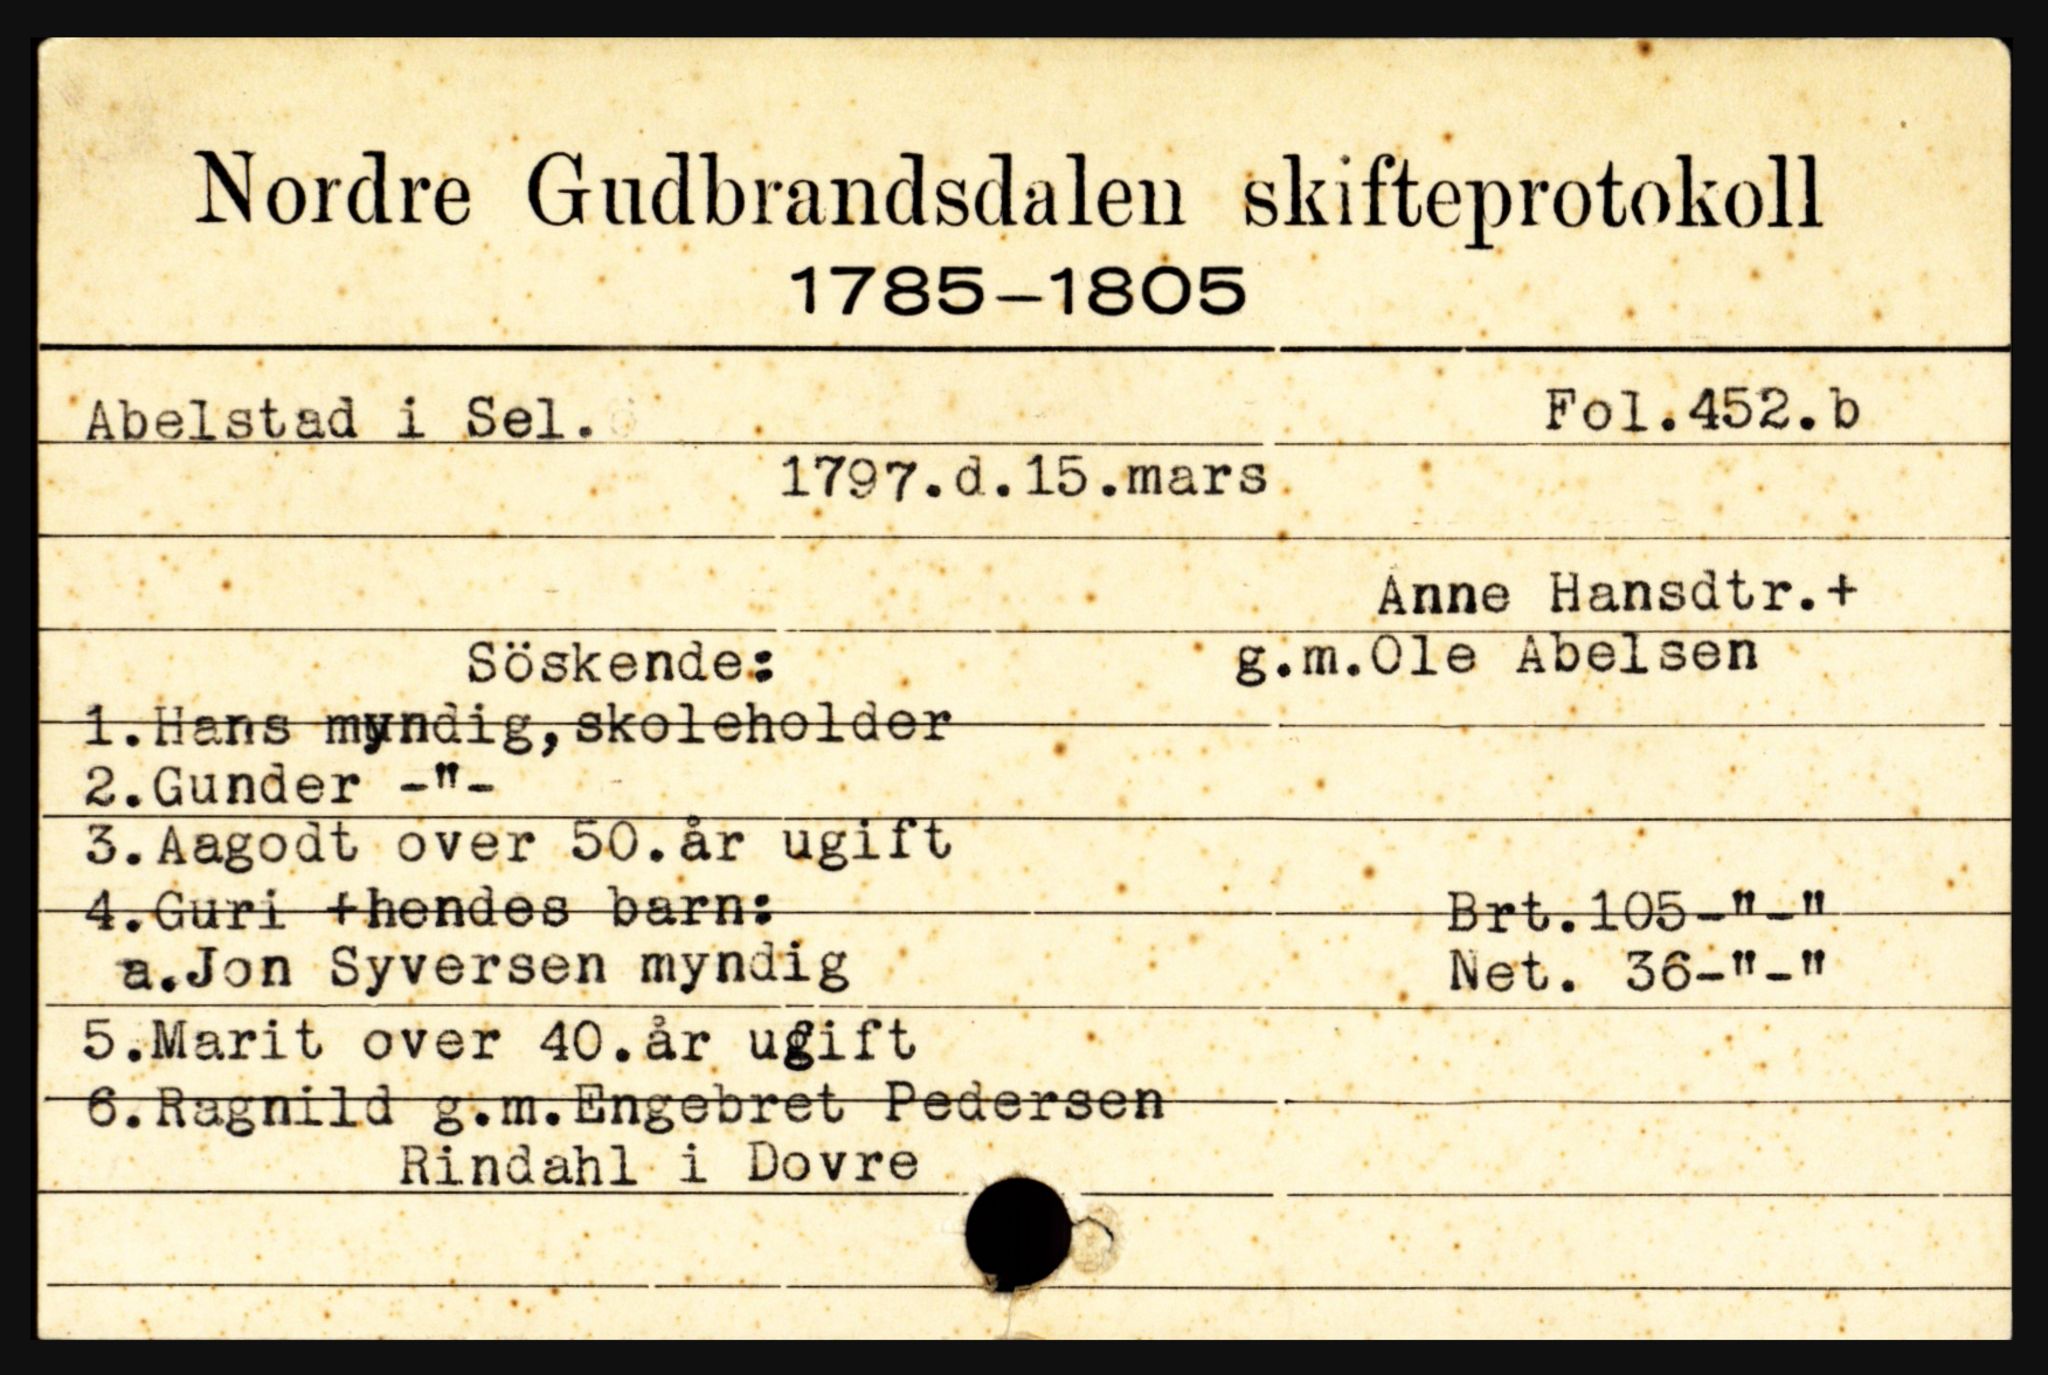 Nordre Gudbrandsdalen skifteprotokoll
1785-1805
Abelstad i Sel. Fol.452.b
1797.d.15.mars
Anne Hansdtr.+
Söskende: g.m.Ole Abelsen
1.Hans myndig,skoleholder
2.Gunder -"-
3.Aagodt over 50.år ugift
4.Guri +hendes barn: Brt.105-"-"
a.Jon Syversen myndig Net. 36-"-"
5.Marit over 40.år ugift
6.Ragnild g.m.Engebret Pedersen
Rindahl i Dovre